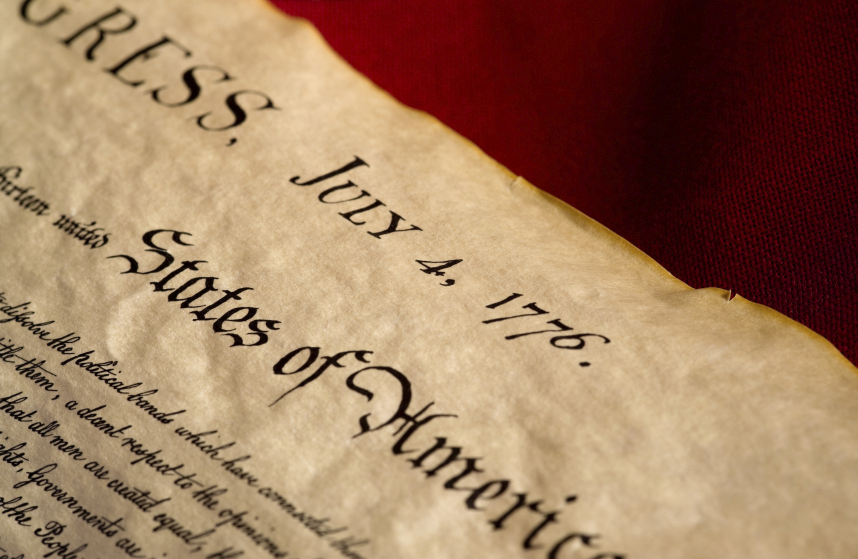 GRESS, JULY 4, 1776.
thirteen united States of America
dissolve the political bands which have connected
them, a decent respect to the opinions
that all men are created equal,
Governments are
of the People